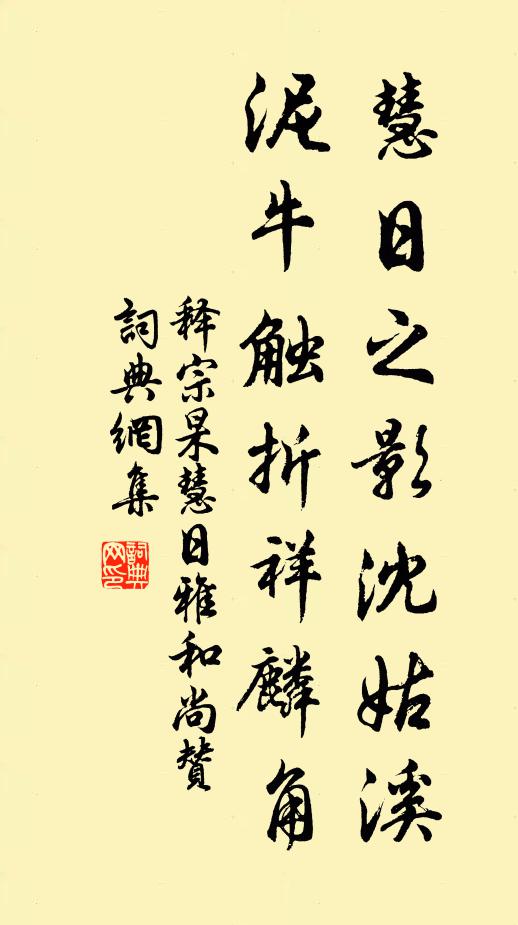 慧日之影沈姑溪
泥牛触折祥麟角
释宗杲慧日雅和尚赞
詞典網集
詞典网印